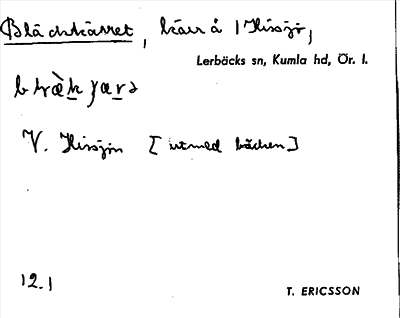 Bläckkärret, kärr å 1 Hissjö,
Lerbäcks sn, Kumla hd, Ör. l.
V. Hissjön [utmed bäcken]
12.1
T. ERICSSON